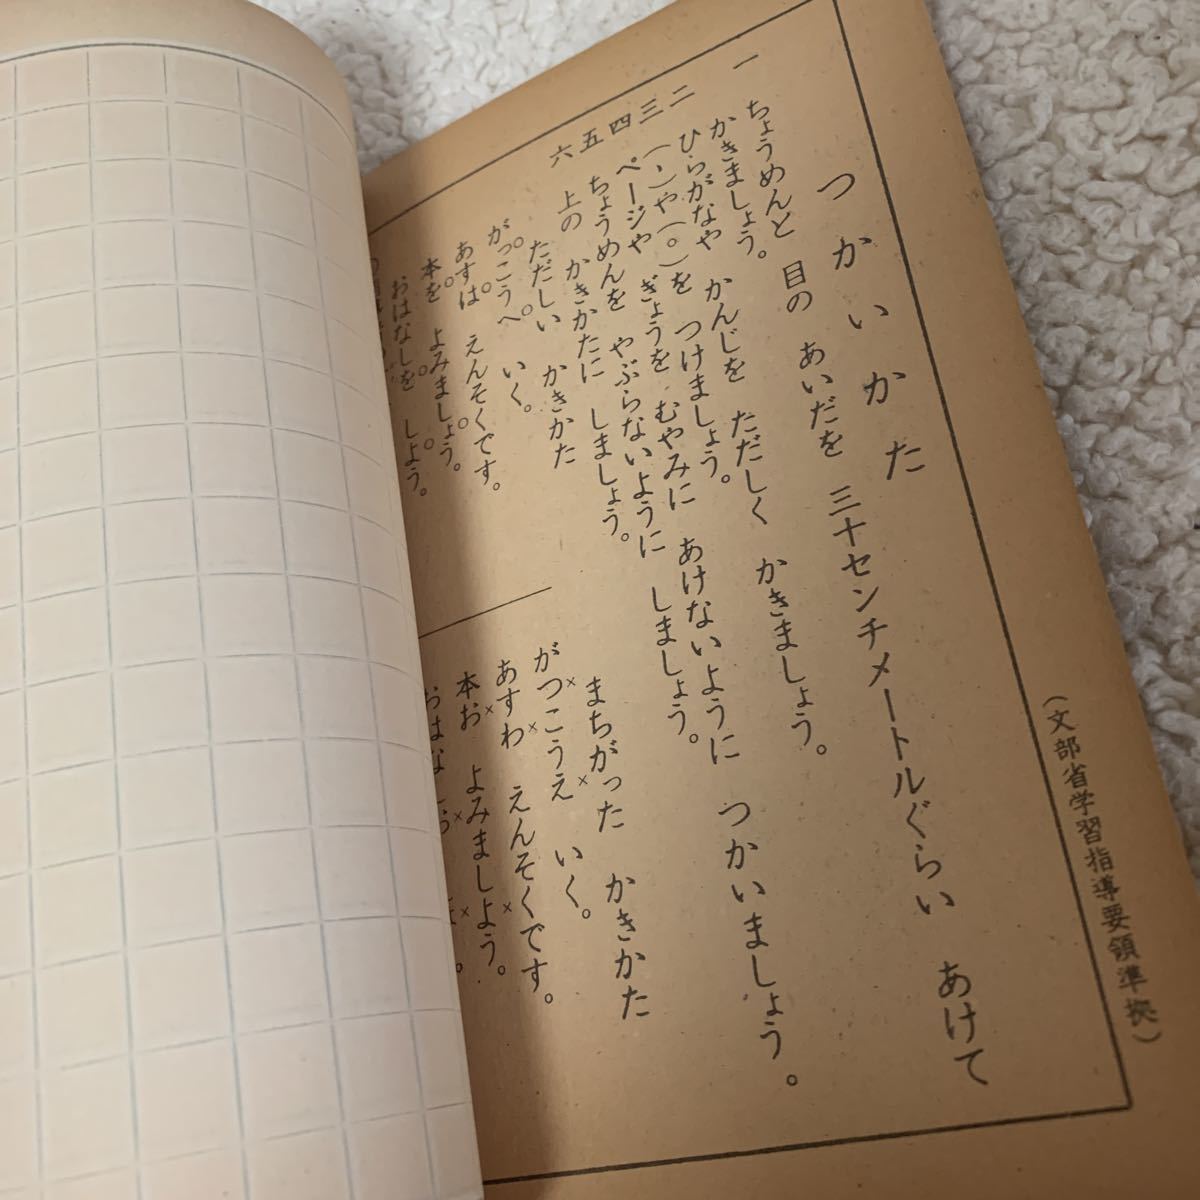 (文部省学習指導要領準拠)
つかいかた
一 ちょうめんと 目の あいだを 三十センチメートルぐらい あけて
かきましょう。
二 ひらがなや かんじを ただしく かきましょう。
三 (、)や(。)を つけましょう。
四 ページや ぎょうを むやみに あけないように つかいましょう。
五 ちょうめんを やぶらないように しましょう。
六 上の かきかたに しましょう。
ただしい かきかた
がっこうへ いく。
あすは えんそくです。
本を よみましょう。
おはなしを しよう。
まちがった かきかた
がつこうえ いく。
あすわ えんそくです。
本お よみましよう。